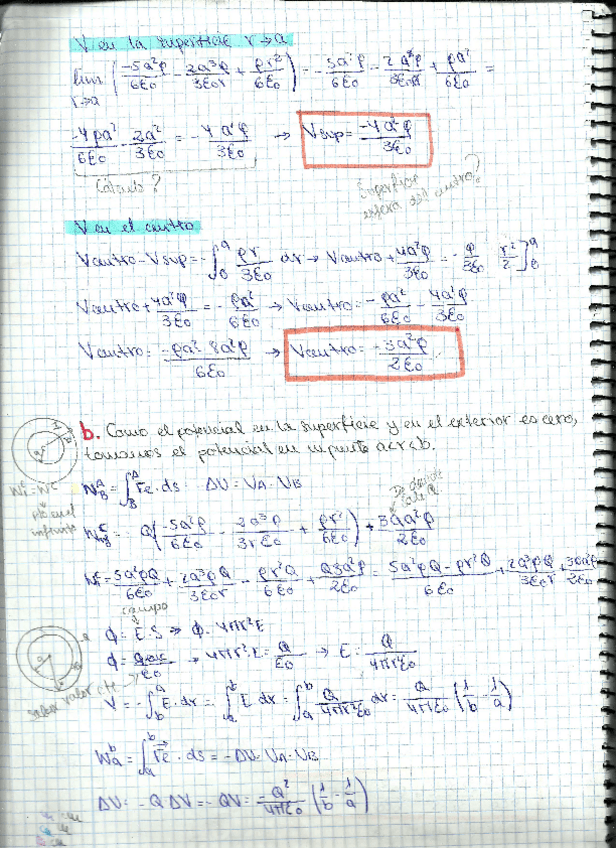 V en la superficie r→a
lim r→a (-5a²ρ/6ε₀ - 2a³ρ/3ε₀r + ρr²/6ε₀) = -5a²ρ/6ε₀ - 2a³ρ/3ε₀a + ρa²/6ε₀ =
-4ρa²/6ε₀ - 2a²/3ε₀ = -4a²ρ/3ε₀ → Vsup = -4a²ρ/3ε₀
Cálculo?
Superficie esfera es el centro?
V en el centro
Vcentro - Vsup = -∫₀ᵃ ρr/3ε₀ dr → Vcentro + 4a²ρ/3ε₀ = -ρ/3ε₀ r²/2]₀ᵃ
Vcentro + 4a²ρ/3ε₀ = -ρa²/6ε₀ → Vcentro = -ρa²/6ε₀ - 4a²ρ/3ε₀
Vcentro = -ρa² - 8a²ρ/6ε₀ → Vcentro = -3a²ρ/2ε₀
b. Como el potencial en la superficie y en el exterior es cero,
tomamos el potencial en un punto a<r<b.
W_B^A = ∫_B^A Fe·ds = ΔU = U_A - U_B
infinito
De donde sale?
= -Q(-5a²ρ/6ε₀ - 2a³ρ/3rε₀ + ρr²/6ε₀) + 3Qa²ρ/2ε₀
= 5a²ρQ/6ε₀ + 2a³ρQ/3ε₀r - ρr²Q/6ε₀ + Q3a²ρ/2ε₀ = 5a²ρQ - ρr²Q/6ε₀ + 2a³ρQ/3ε₀r + 3Qa²ρ/2ε₀
campo
ϕ = E·S ⇒ ϕ = 4πr²E
ϕ = /ε₀ → 4πr²·E = Q/ε₀ → E = Q/4πr²ε₀
saber valor cte
V = -∫_b^a E·dr = ∫_a^b E dr = ∫_a^b Q/4πr²ε₀ dr = Q/4πε₀ (1/b - 1/a)
W_a^b = ∫_a^b Fe·ds = -ΔU = U_A - U_B
ΔU = -QΔV = -QV = -Q²/4πε₀ (1/b - 1/a)